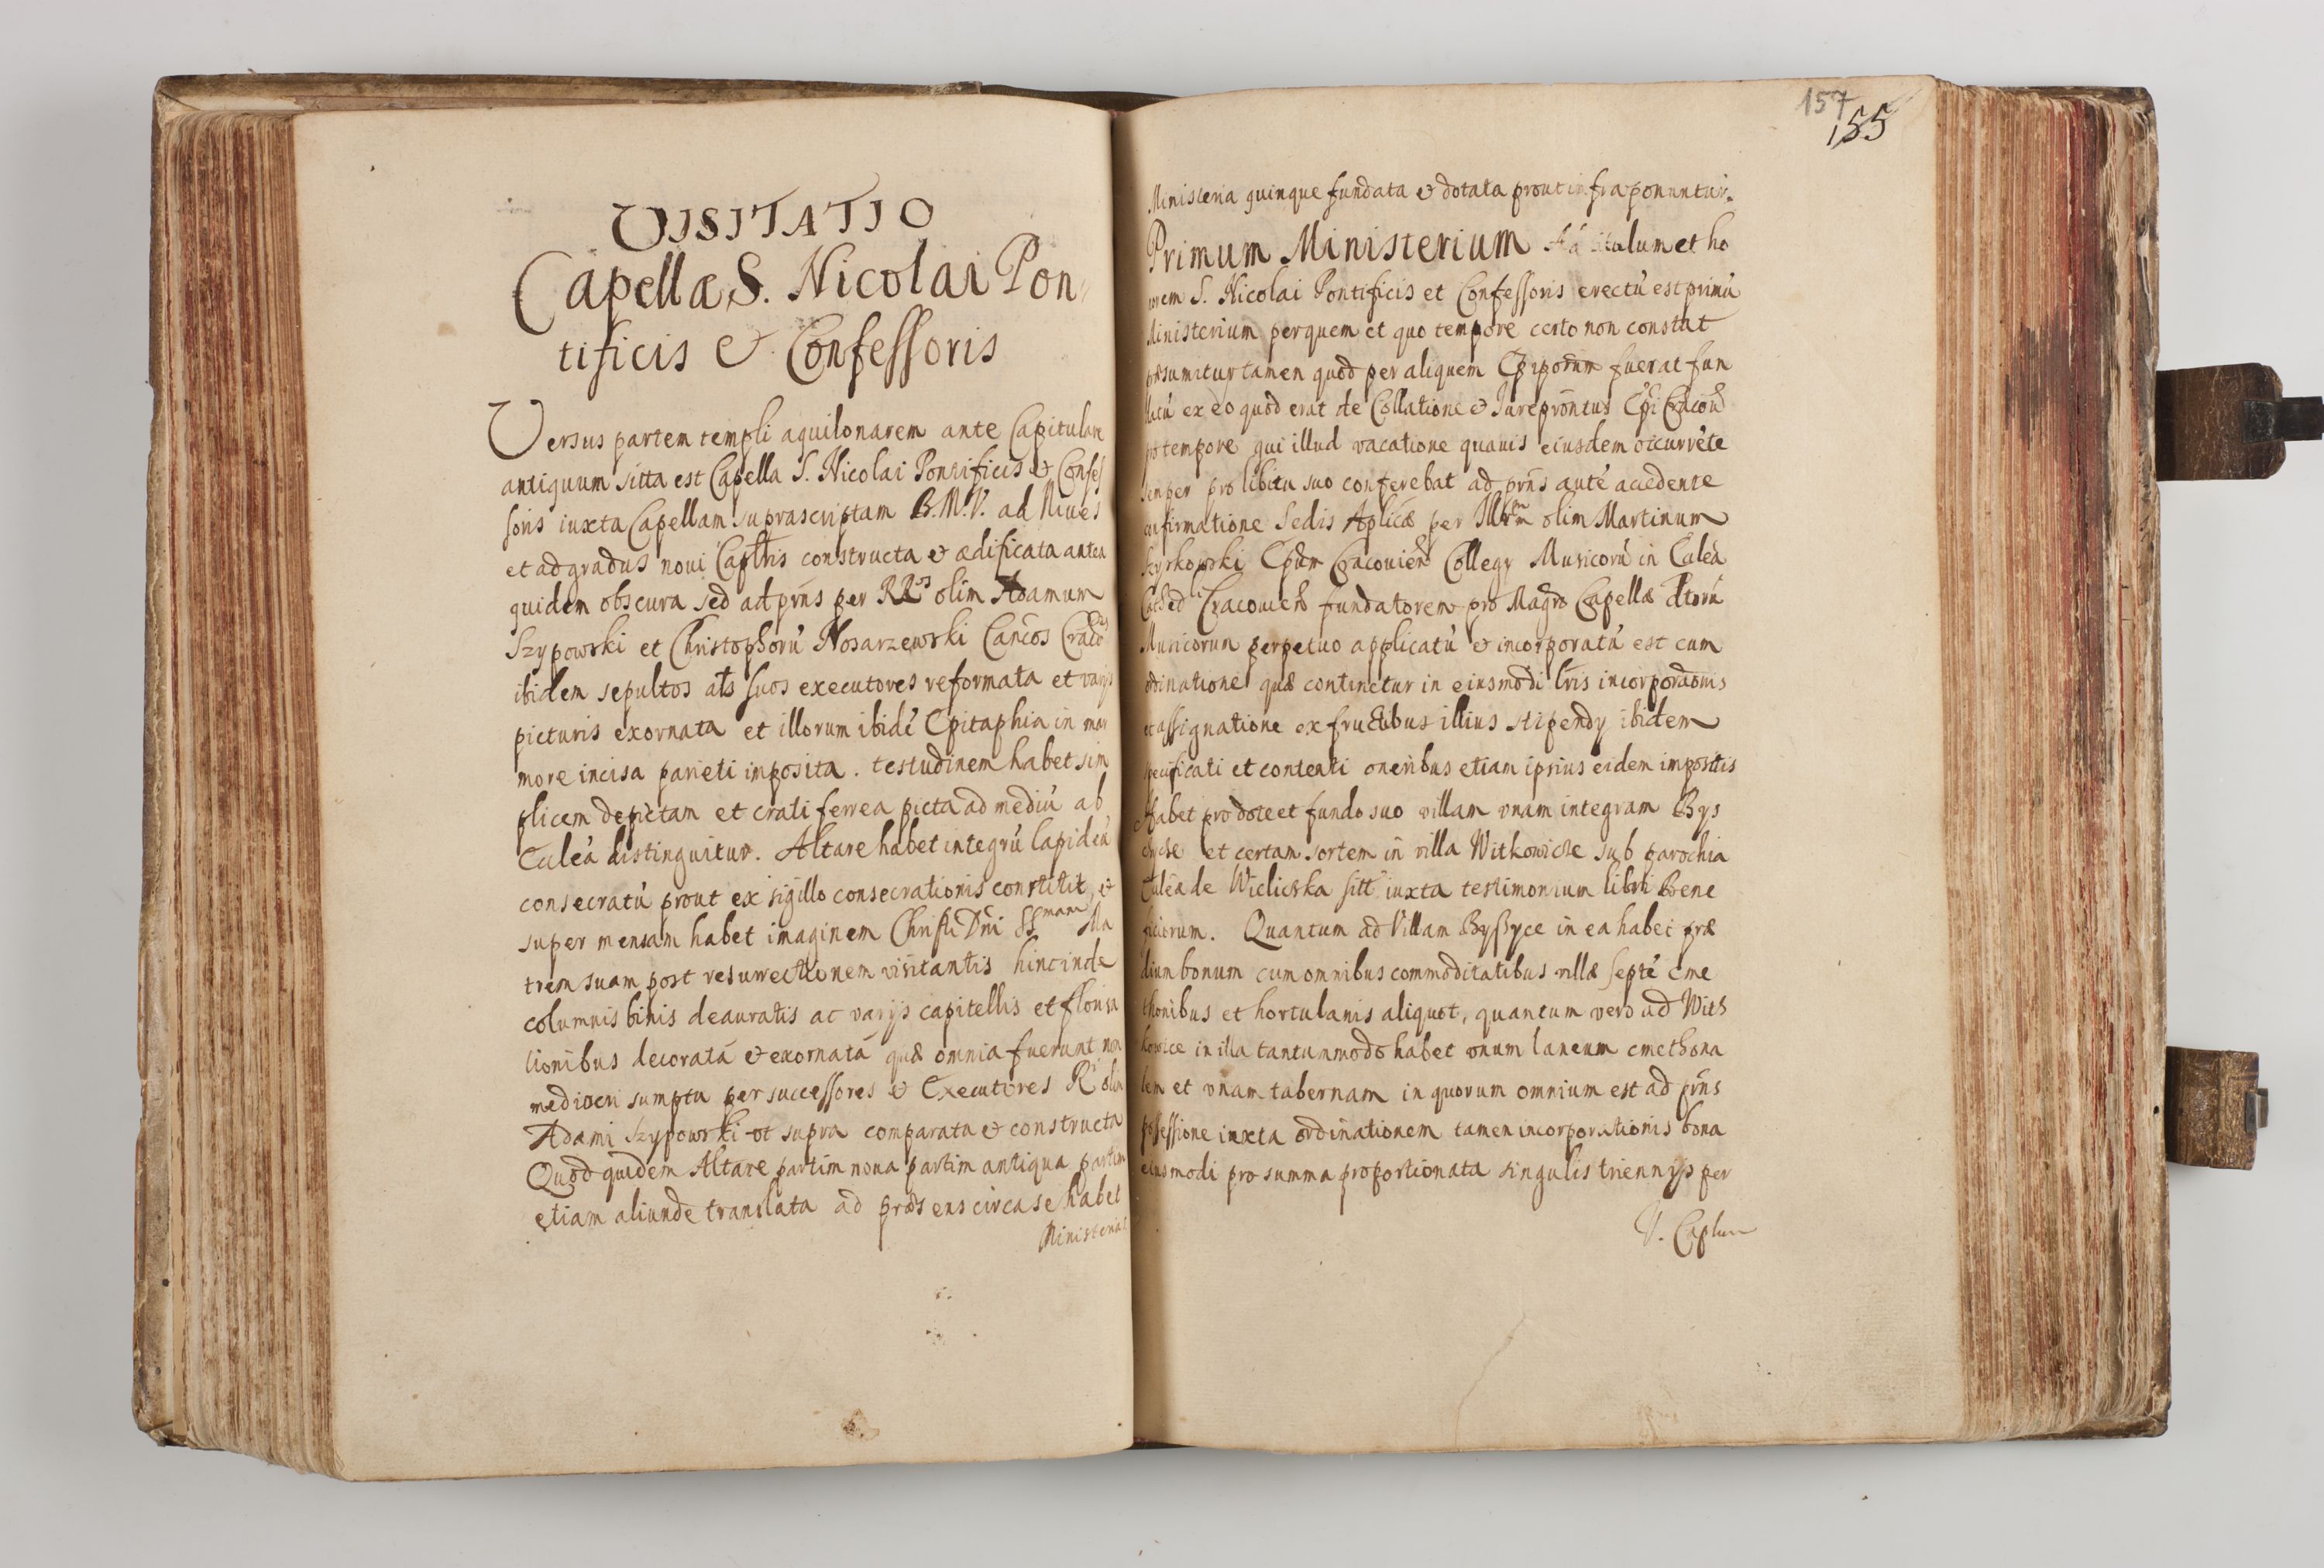 VISITATIO
Capellæ S. Nicolai Pon
tificis & Confessoris
Versus partem templi aquilonarem ante Capitulare
antiquum sitta est Capella S. Nicolai Pontificis & Confes
soris iuxta Capellam suprascriptam B.M.V. ad Niues
et ad gradus noui Capłris constructa & ædificata antea
quidem obscura sed ad prñs per RR olim Adamum
Szypowski et Christophorū Nosarzewski Cañcos
ibidem sepultos als suos executores reformata et varijs
picturis exornata et illorum ibidē Epitaphia in mar
more incisa parieti imposita. testudinem habet sim
plicem depictam et crati ferrea picta ad mediū ab
Ecclẽa distinguitur. Altare habet integrū lapideū
consecratū prout ex sigillo consecrationis constitit, &
super mensam habet imaginem Christi Dñi SSmam Ma
trem suam post resurrectionem visitantis hinc inde
columnis binis deauratis ac varijs capitellis et floriza
tionibus decoratā & exornatā quæ omnia fuerunt non
mediocri sumptu per successores & Executores Ri olim
Adami Szypowski ut supra comparata & constructa
Quod quidem Altare partim noua partim antiqua partim
etiam aliunde translata ad præsens circa se habet
Ministeria
157
155
Ministeria quinque fundata & dotata prout infra ponuntur.
Primum Ministerium Ad titulum et ho
norem S. Nicolai Pontificis et Confessoris erectū est primū
Ministerium per quem et quo tempore certo non constat
præsumitur tamen quod per aliquem Epiporum fuerat fun
datū ex eo quod erat de Collatione & Jurepróntus Epi Cracou
pro tempore qui illud vacatione quauis eiusdem occurrēte
semper pro libitu suo conferebat ad prñs autē accedente
confirmatione Sedis Aplicæ per Illrem olim Martinum
Szyszkowski Epum Cracouien Collegij Musicorū in Ecclẽa
Cathed Cracouien fundatorem pro Magro Capellæ dtorū
Musicorum perpetuo applicatū & incorporatū est cum
ordinatione quæ continetur in eiusmodi lris incorporaonis
et assignatione ex fructibus illius stipendij ibidem
specificati et contenti oneribus etiam ipsius eidem impositis
Habet pro dote et fundo suo villam vnam integram Bys
et certam sortem in villa Witkowicze sub parochia
Ecclẽa de Wieliczka sitt iuxta testimonium libri Bene
ficiorum. Quantum ad Villam Byszyce in ea habet præ
dium bonum cum omnibus commoditatibus villæ septē cme
thonibus et hortulanis aliquot, quantum vero ad With
kowice in illa tantummodo habet vnum laneum cmethona
lem et vnam tabernam in quorum omnium est ad prñs
possessione iuxta ordinationem tamen incorporationis bona
eiusmodi pro summa proportionata singulis triennijs per
V. Caplum